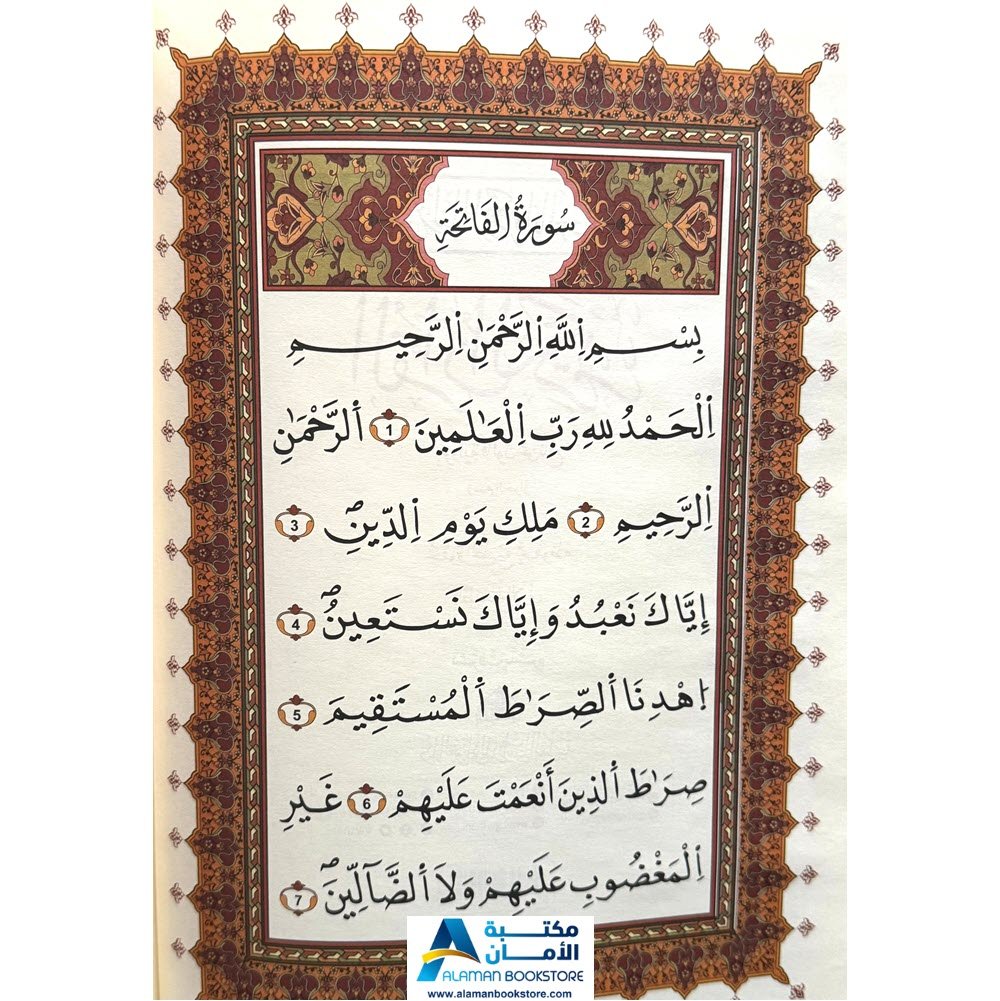 سُورَةُ الفَاتِحَةِ
بِسْمِ اِ۬للَّهِ اِ۬لرَّحْمَٰنِ اِ۬لرَّحِيمِ
اِ۬لْحَمْدُ لِلهِ رَبِّ اِ۬لْعَٰلَمِينَ 1 اَ۬لرَّحْمَٰنِ
اِ۬لرَّحِيمِ 2 مَلِكِ يَوْمِ اِ۬لدِّينِۖ 3
إِيَّاكَ نَعْبُدُ وَإِيَّاكَ نَسْتَعِينُۖ 4
اِ۪هْدِنَا اَ۬لصِّرَٰطَ اَ۬لْمُسْتَقِيمَ 5
صِرَٰطَ اَ۬لذِينَ أَنْعَمْتَ عَلَيْهِمْ 6 غَيْرِ
اِ۬لْمَغْضُوبِ عَلَيْهِمْ وَلَا اَ۬لضَّآلِّينَۖ 7
مكتبة
الأمان
ALAMAN BOOKSTORE
www.alamanbookstore.com